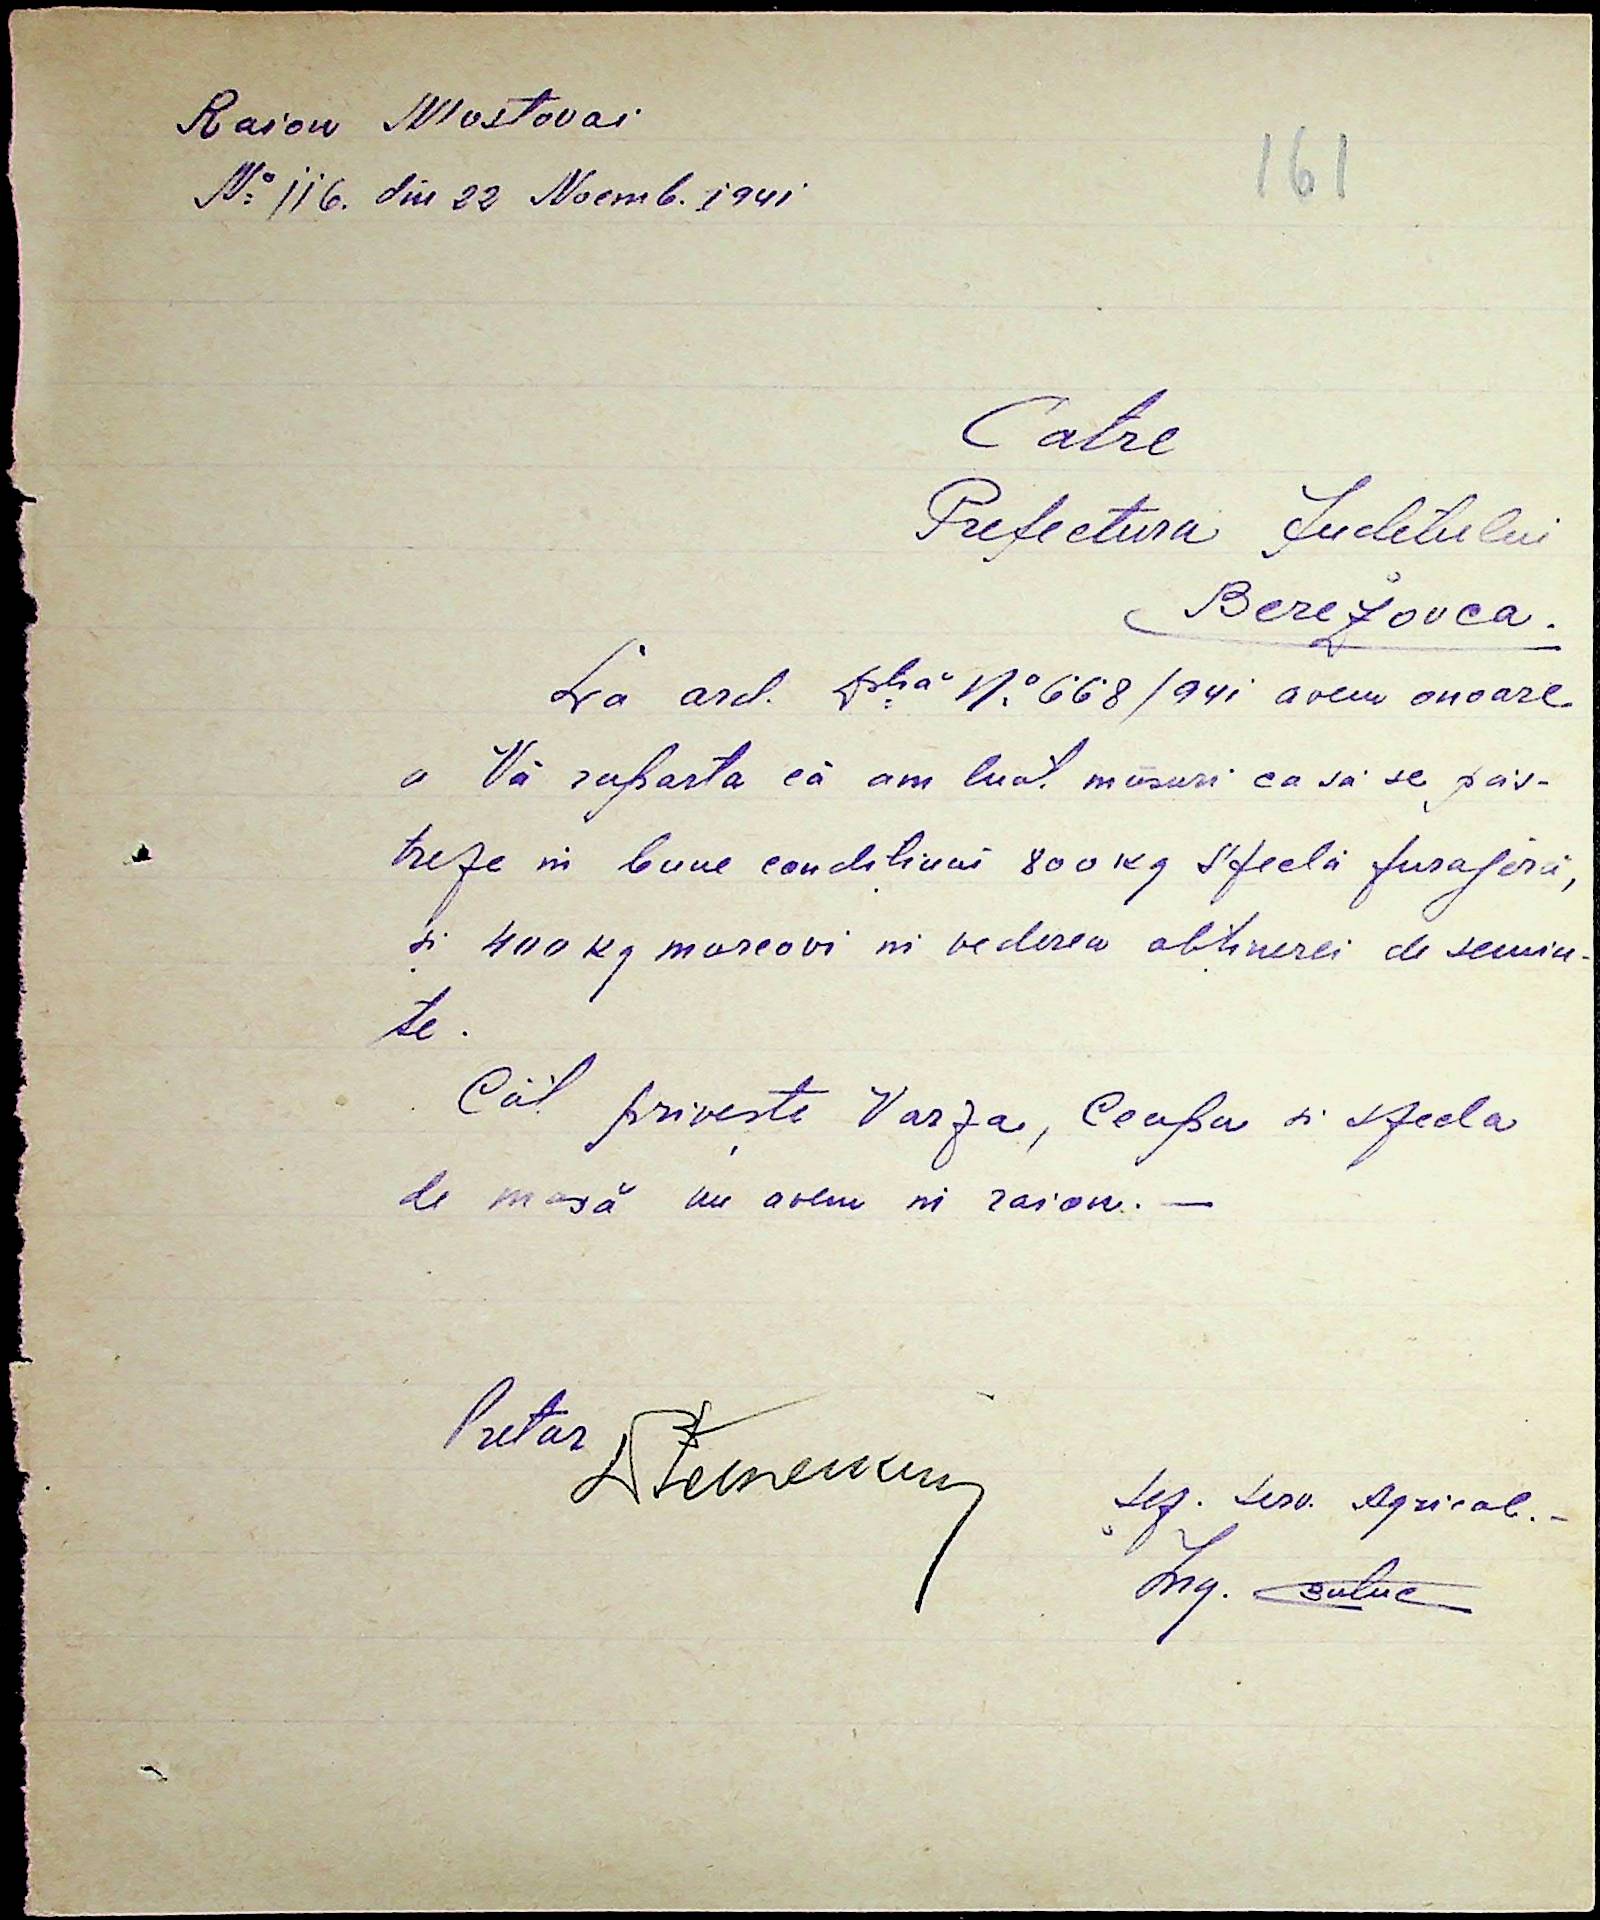 Raion Mostovoi
161
No 116. din 22 Noemb. 1941
Catre
Prefectura Judetului
Berezovca.
La ord. Dvs. No 668/941 avem onoare
a Vă raporta că am luat măsuri ca să se păs-
treze in bune condițiuni 800 kg sfeclă furajeră,
și 400 kg morcovi in vederea obținerei de semin-
te.
Cât privește Varza, Ceapa si sfecla
de masă nu avem in raion. —
Pretor
Șef. Serv. Agricol. -
Ing.